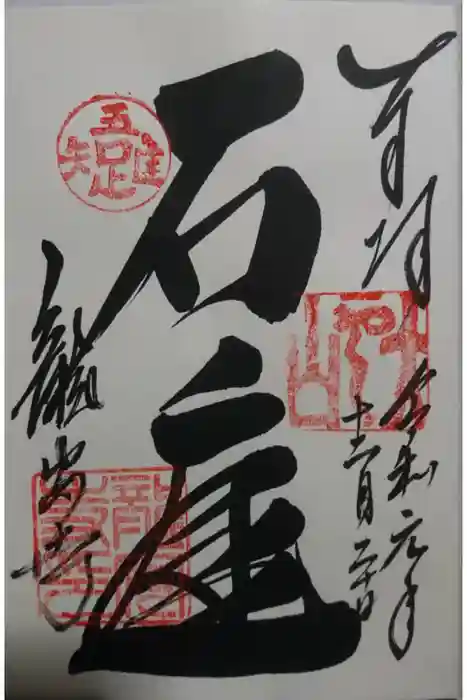 奉拝
令和元年
十二月二十日
石庭
龍安寺
五隹疋矢